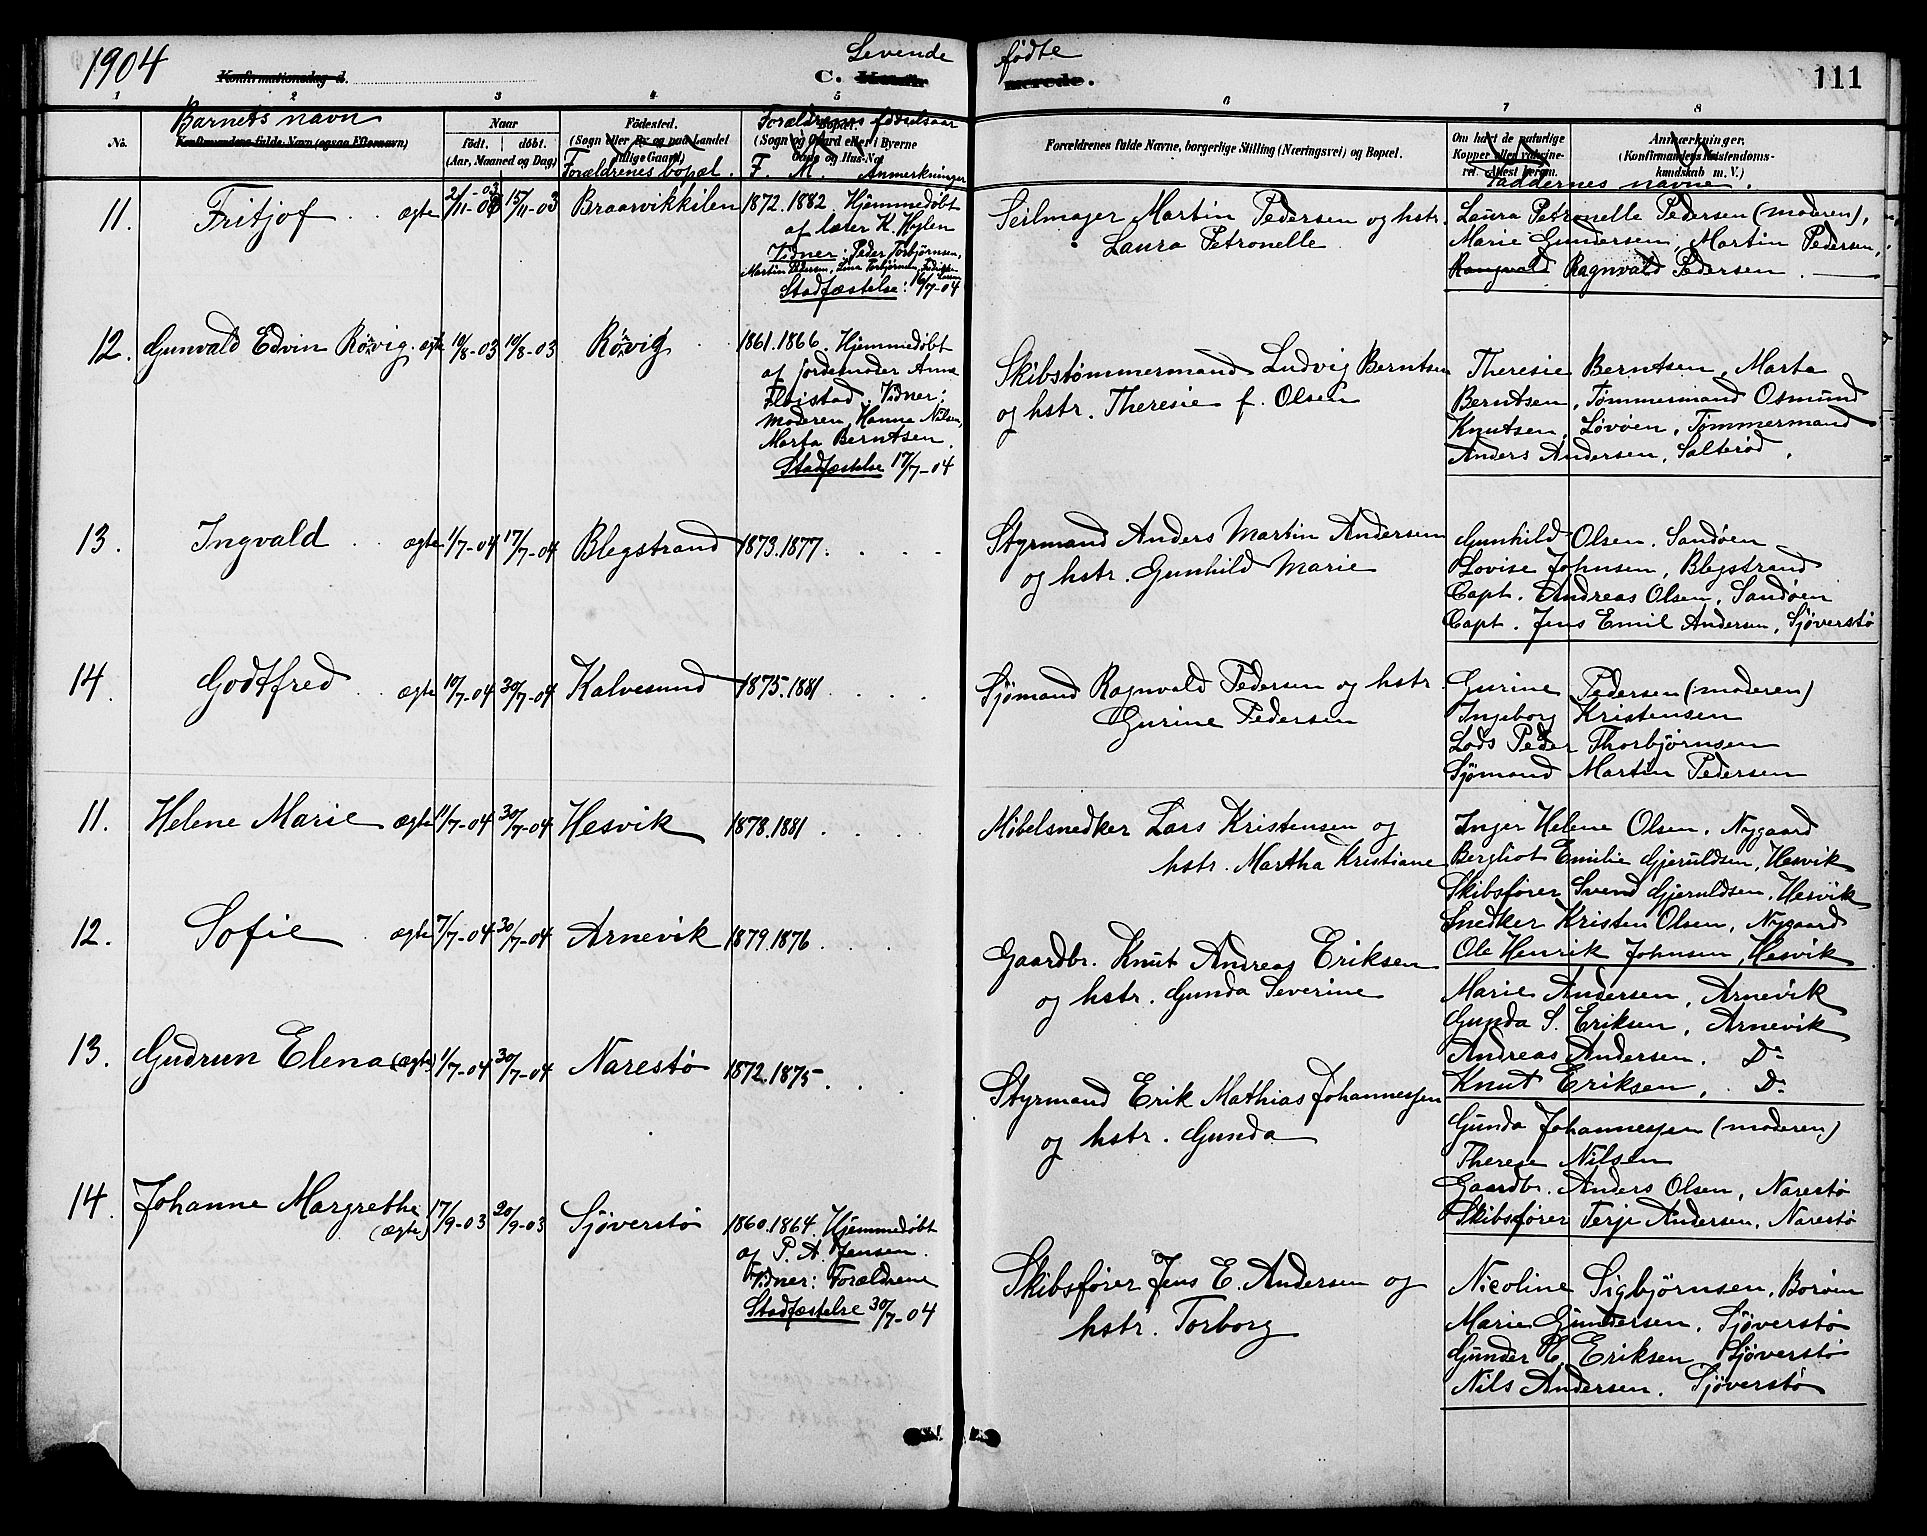 1904
Konfirmationsdag d.
Levende
C. Konfir-
fødte
merede.
111
1 2 3 4 5 6 7 8
No.
Barnets navn
Konfirmandens fulde Navn (ogsaa Efternavn)
Naar
født. døbt.
(Aar, Maaned og Dag)
Fødested.
(Sogn eller By og paa Landet tillige Gaard)
Forældrenes bopæl.
Forældrenes fødselsaar
Bopæl.
(Sogn og Gaard eller i Byerne Gade og Hus-No.)
F. M. Anmerkninger
Forældrenes fulde Navne, borgerlige Stilling (Næringsvei) og Bopæl.
Om havt de naturlige Kopper eller vakcineret. Attest herom.
Anmærkninger.
(Konfirmandens Kristendomskundskab m. V.)
Faddernes navne.
11. Fritjof ægte 2/11-03 15/11-03 Braarvikkilen 1872.1882. Hjemmedøbt
af lærer K. Hylen
Vidner: Peder Torbjørnsen,
Martin Pedersen, Lina Torbjørnsen,
Stadfæstelse: 16/7-04
Seilmager Martin Pedersen og hstr.
Laura Petronelle
Laura Petronelle Pedersen (moderen),
Marie Gundersen, Martin Pedersen,
Rangvald Ragnvald Pedersen.
12. Gunvald Edvin Rövig. ægte 10/8-03 10/8-03 Rövig 1861.1866. Hjemmedøbt
af jordemoder Anne
Fløistad. Vidner:
moderen, Hanna Nilsen,
Marta Berntsen.
Stadfæstelse 17/7-04
Skibstømmermand Ludvig Berntsen
og hstr. Theresie f. Olsen
Theresie Berntsen, Marta
Berntsen, Tømmermand Osmund
Knutsen, Løvøen, Tømmermand
Anders Andersen, Salterød.
13. Ingvald ægte 1/7-04 17/7-04 Blegstrand 1873.1877.
Styrmand Anders Martin Andersen
og hstr. Gunhild Marie
Gunhild Olsen. Sandøen
Lovise Johnsen, Blegstrand
Capt. Andreas Olsen, Sandøen
Capt. Jens Emil Andersen, Sjøverstø
14. Godtfred ægte 10/7-04 30/7-04 Kalvesund 1875.1881
Sjømand Ragnvald Pedersen og hstr.
Gurine Pedersen
Gurine Pedersen (moderen)
Ingeborg Kristensen
Lods Peder Thorbjørnsen
Sjømand Martin Pedersen
11. Helene Marie ægte 11/7-04 30/7-04 Hesvik 1878.1881
Möbelsnedker Lars Kristensen og
hstr. Martha Kristiane
Inger Helene Olsen, Nygaard
Bergliot Emilie Gjeruldsen, Hesvik
Skibsfører Svend Gjeruldsen, Hesvik
Snedker Kristen Olsen, Nygaard
Ole Henrik Johnsen, Hesvik
12. Sofie ægte 7/7-04 30/7-04 Arnevik 1879.1876
Gaardbr. Knut Andreas Eriksen
og hstr. Gunda Severine
Marie Andersen, Arnevik
Gunda S. Eriksen, Arnevik
Andreas Andersen. Do
Knut Eriksen, Do
13. Gudrun Elena (ægte) 1/7-04 30/7-04 Narestø 1872.1875.
Styrmand Erik Mathias Johannessen
og hstr. Gunda
Gunda Johannessen (moderen)
Therese Nilsen
Gaardbr. Anders Olsen, Narestø
Skibsfører Terje Andersen, Narestø
14. Johanne Margrethe (ægte) 17/9-03 20/9-03 Sjøverstø 1860.1864. Hjemmedøbt
af P. A. Jensen.
Vidner: Forældrene
Stadfæstelse 30/7-04
Skibsfører Jens E. Andersen og
hstr. Torborg
Nicoline Sigbjörnsen, Borøen
Marie Gundersen. Sjøverstø
Gunder E. Eriksen, Sjøverstø
Nils Andersen. Sjøverstø